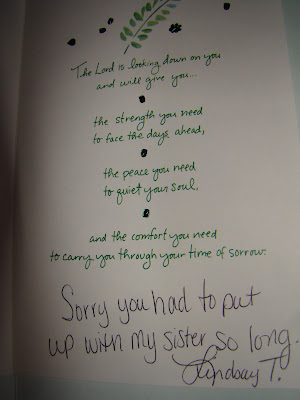 The Lord is looking down on you
and will give you...
the strength you need
to face the days ahead,
the peace you need
to quiet your soul,
and the comfort you need
to carry you through your time of sorrow.
Sorry you had to put
up with my sister so long.
Lindsay T.